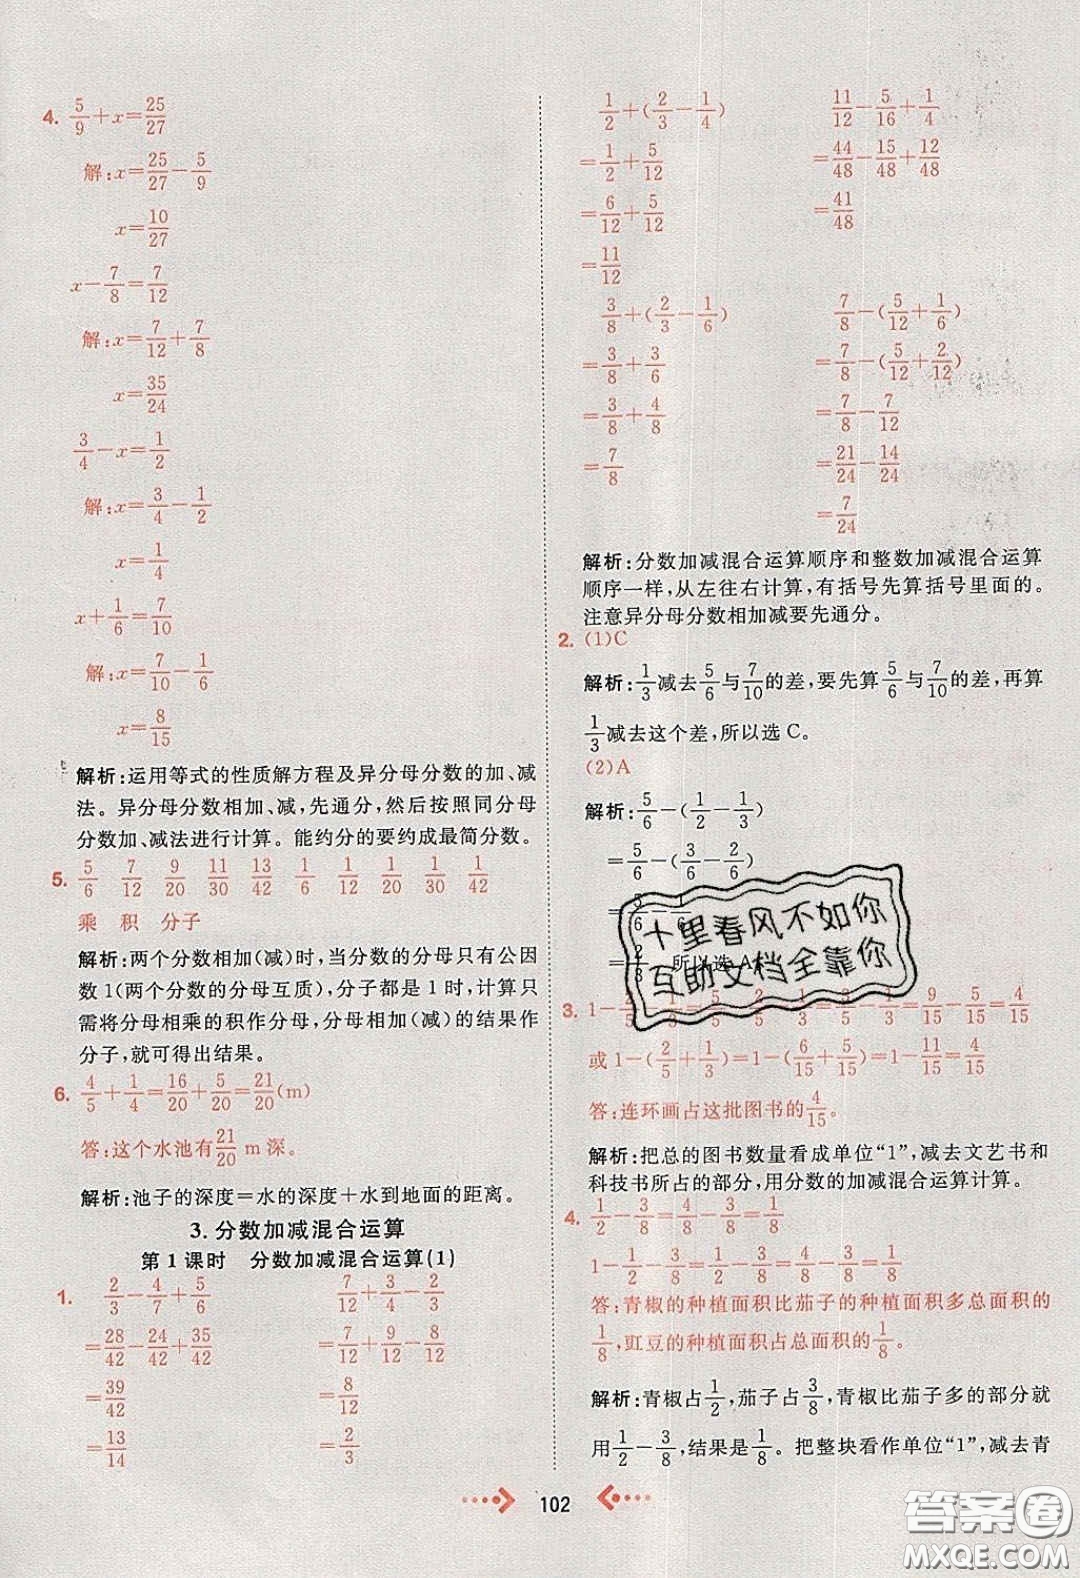 4. 5/9+x=25/27
解:x=25/27-5/9
x=10/27
x-7/8=7/12
解:x=7/12+7/8
x=35/24
3/4-x=1/2
解:x=3/4-1/2
x=1/4
x+1/6=7/10
解:x=7/10-1/6
x=8/15
解析:运用等式的性质解方程及异分母分数的加、减
法。异分母分数相加、减,先通分,然后按照同分母
分数加、减法进行计算。能约分的要约成最简分数。
5. 5/6 7/12 9/20 11/30 13/42 1/6 1/12 1/20 1/42
乘 积 分子
解析:两个分数相加(减)时,当分数的分母只有公因
数1(两个分数的分母互质),分子都是1时,计算时只
需将分母相乘的积作分母,分母相加(减)的结果作
分子,就可得出结果。
6. 4/5+1/4=16/20+5/20=21/20(m)
答:这个水池有21/20 m深。
解析:池子的深度=水的深度+水到地面的距离。
3.分数加减混合运算
第1课时 分数加减混合运算(1)
1. 2/3-4/7+5/6
=28/42-24/42+35/42
=39/42
=13/14
7/12+3/4-2/3
=7/12+9/12-8/12
=8/12
=2/3
1/2+(2/3-1/4)
=1/2+5/12
=6/12+5/12
=11/12
11/12-5/16+1/4
=44/48-15/48+12/48
=41/48
3/8+(2/3-1/6)
=3/8+3/6
=3/8+4/8
=7/8
7/8-(5/12+1/6)
=7/8-(5/12+2/12)
=7/8-7/12
=21/24-14/24
=7/24
解析:分数加减混合运算顺序和整数加减混合运算
顺序一样,从左往右计算,有括号先算括号里面的。
注意异分母分数相加减要先通分。
2. (1)C
解析:1/3减去5/6与7/10的差,要先算5/6与7/10的差,再算
1/3减去这个差,所以选C。
(2)A
解析:5/6-(1/2-1/3)
=5/6-(3/6-2/6)
所以选A
十里春风不如你
互助文档全靠你
3. 1-2/5-1/3=3/5-1/3=9/15-5/15=4/15
或1-(2/5+1/3)=1-(6/15+5/15)=1-11/15=4/15
答:连环画占这批图书的4/15。
解析:把总的图书数量看成单位“1”,减去文艺书和
科技书所占的部分,用分数的加减混合运算计算。
4. 1/2-3/8=4/8-3/8=1/8
1-1/2-3/8=1/2-3/8=4/8-3/8=1/8
答:青椒的种植面积比茄子的种植面积多总面积的
1/8,豇豆的种植面积占总面积的1/8。
解析:青椒占1/2,茄子占3/8,青椒比茄子多的部分就
用1/2-3/8,结果是1/8。把整块看作单位“1”,减去青
102
答案圈
MXQE.COM